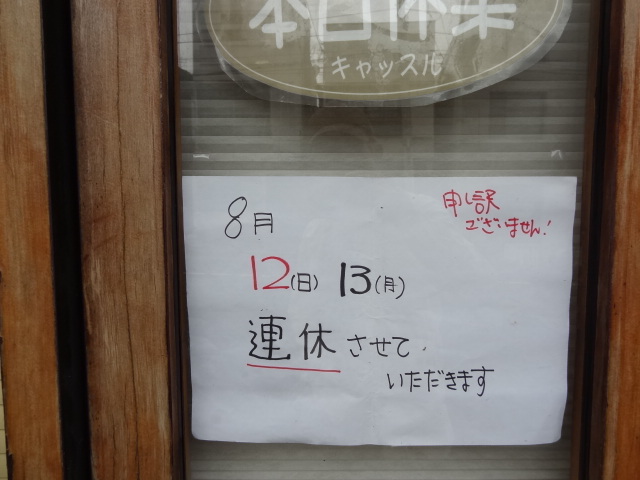 本日休業
キャッスル
8月
申し訳
ございません!
12(日) 13(月)
連休させて
いただきます